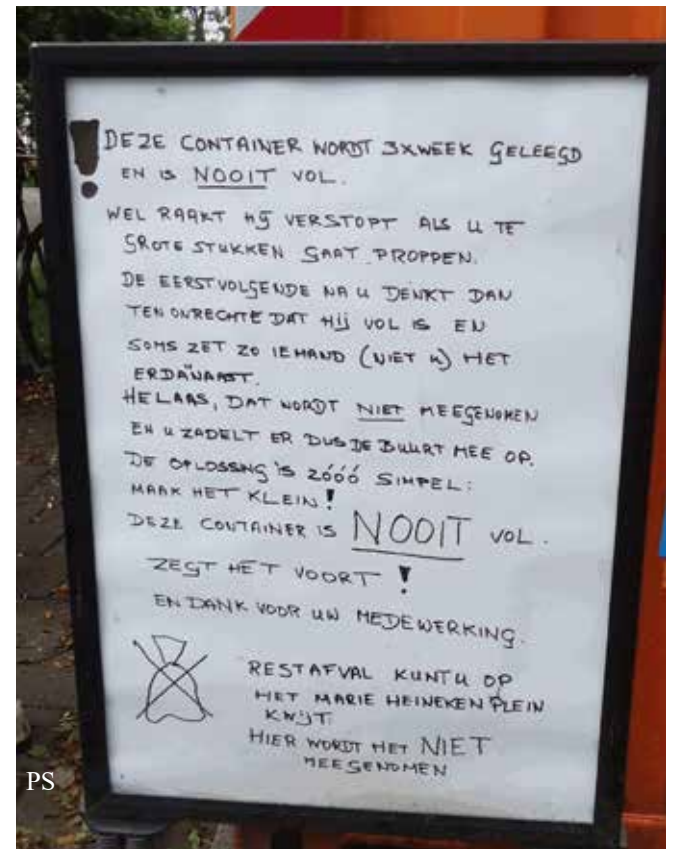 ! DEZE CONTAINER WORDT 3XWEEK GELEEGD
EN IS NOOIT VOL.
WEL RAAKT HIJ VERSTOPT ALS U TE
GROTE STUKKEN GAAT PROPPEN.
DE EERSTVOLGENDE NA U DENKT DAN
TEN ONRECHTE DAT HIJ VOL IS EN
SOMS ZET ZO IEMAND (NIET U) HET
ERDANAAST.
HELAAS, DAT WORDT NIET MEEGENOMEN
EN U ZADELT ER DUS DE BUURT MEE OP.
DE OPLOSSNG IS ZÓÓÓ SIMPEL:
MAAK HET KLEIN!
DEZE CONTAINER IS NOOIT VOL.
ZEGT HET VOORT!
EN DANK VOOR UW MEDEWERKING.
RESTAFVAL KUNT U OP
HET MARIE HEINEKEN PLEIN
KWIJT.
HIER WORDT HET NIET
MEEGENOMEN
PS